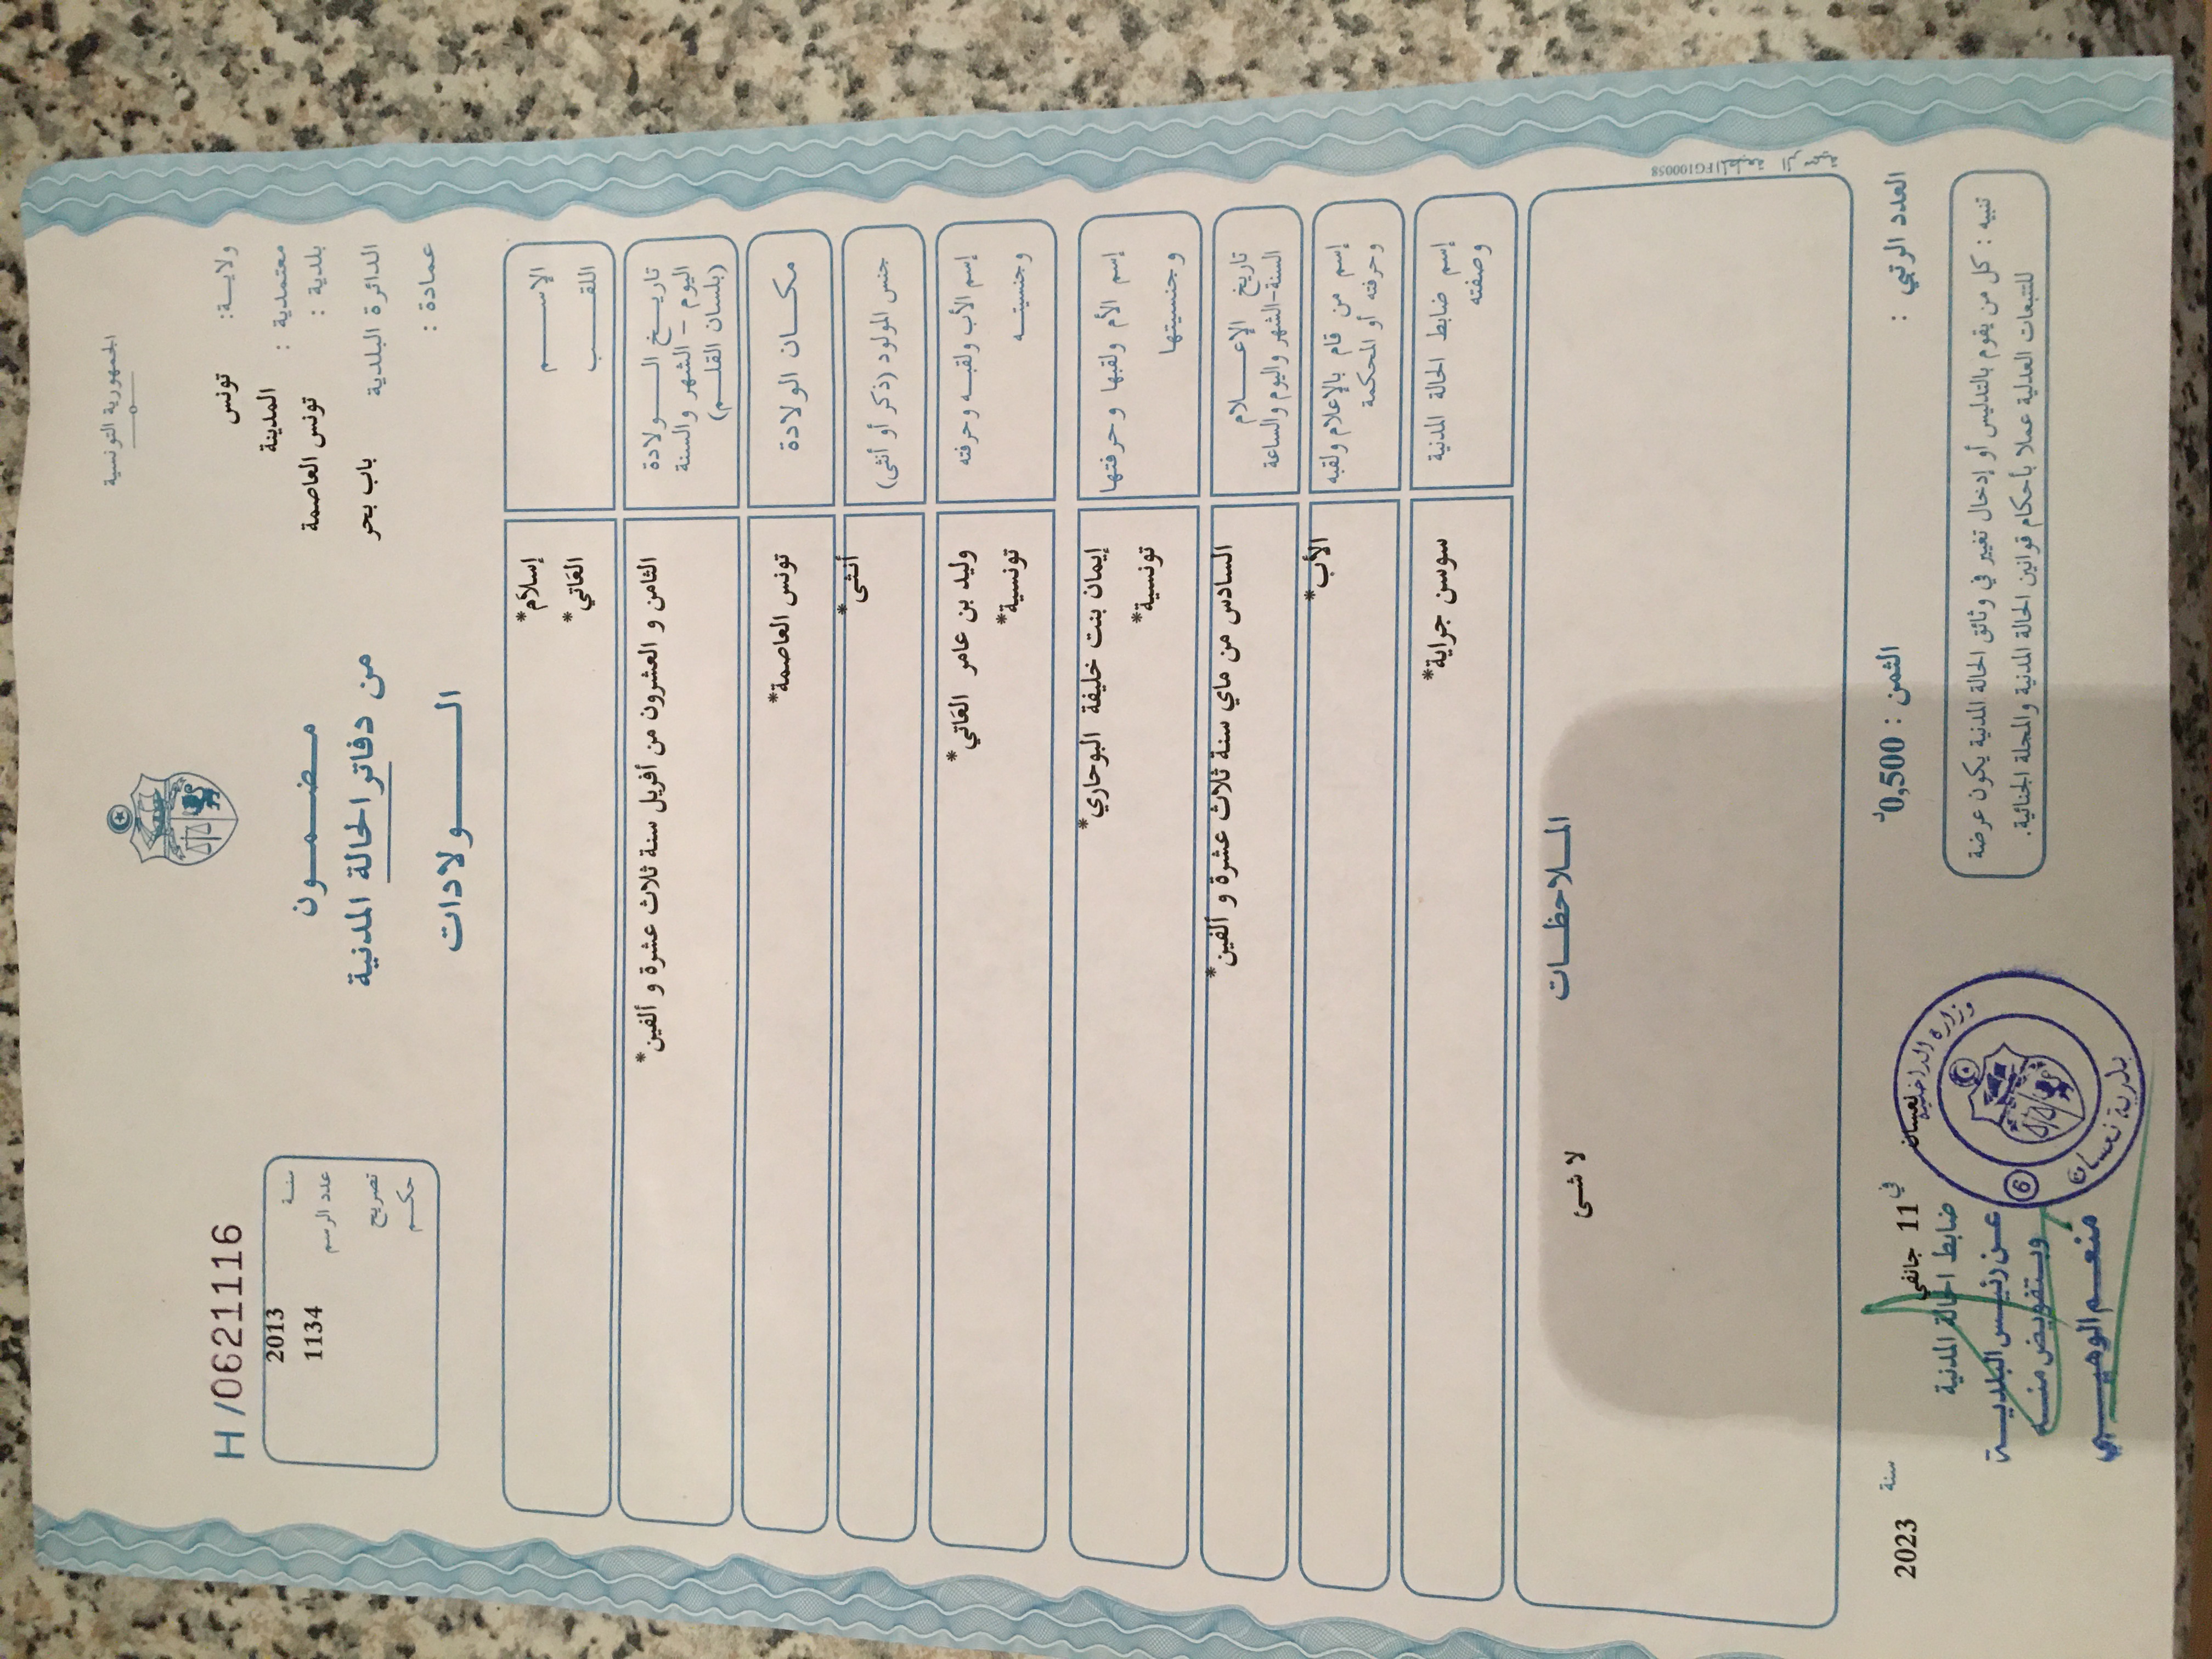 الجمهورية التونسية
H /0621116
ولايــة: تونس
معتمدية : المدينة
بلدية : تونس العاصمة
الدائرة البلدية باب بحر
عمادة :
مضمـــون
من دفاتر الحالة المدنية
الـــولادات
سنـة 2013
عدد الرسم 1134
تصريح
حكـم
الإســـم إسلام*
اللقـــب الغاتي*
تاريــخ الـــولادة
اليوم – الشهر والسنة
(بلسان القلـم)
الثامن و العشرون من أفريل سنة ثلاث عشرة و ألفين*
مكــان الولادة تونس العاصمة*
جنس المولود (ذكر أو أنثى) أنثى*
إسم الأب ولقبـه وحرفته وليد بن عامر الغاتي*
وجنسيتـه تونسية*
إسم الأم ولقبها وحرفتها إيمان بنت خليفة البوحاري*
وجنسيتها تونسية*
تاريخ الإعـــلام
السنة-الشهر واليوم والساعة
السادس من ماي سنة ثلاث عشرة و ألفين*
إسم من قام بالإعلام ولقبه
وحرفته أو المحكمة
الأب*
إسم ضابط الحالة المدنية
وصفته
سوسن جراية*
الملاحظــات
لا شى
العدد الرتبي :
الثمن : 0,500د
في 11 جانفي سنة 2023
ضابط الحالة المدنية
عن رئيس البلديـة
وبتفويض منـه
منعـم الوهيـبي
وزارة الداخلية
بلدية نعسان
6
تنبيه : كل من يقوم بالتدليس أو إدخال تغيير في وثائق الحالة المدنية يكون عرضة
للتتبعات العدلية عملا بأحكام قوانين الحالة المدنية والمجلة الجنائية.